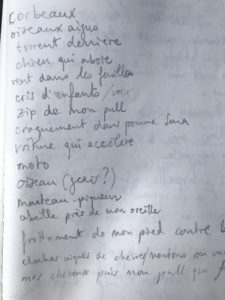 corbeaux
oiseaux aigus
torrent derrière
chien qui aboie
vent dans les feuilles
cris d'enfants / voix
zip de mon pull
croquement dans pomme
voiture qui accélère
moto
oiseau (geais?)
marteau-piqueur
abeille près de mon oreille
frottement de mon pied contre
cloches aiguës de chèvres/moutons ou
mes cheveux puis mon pull que